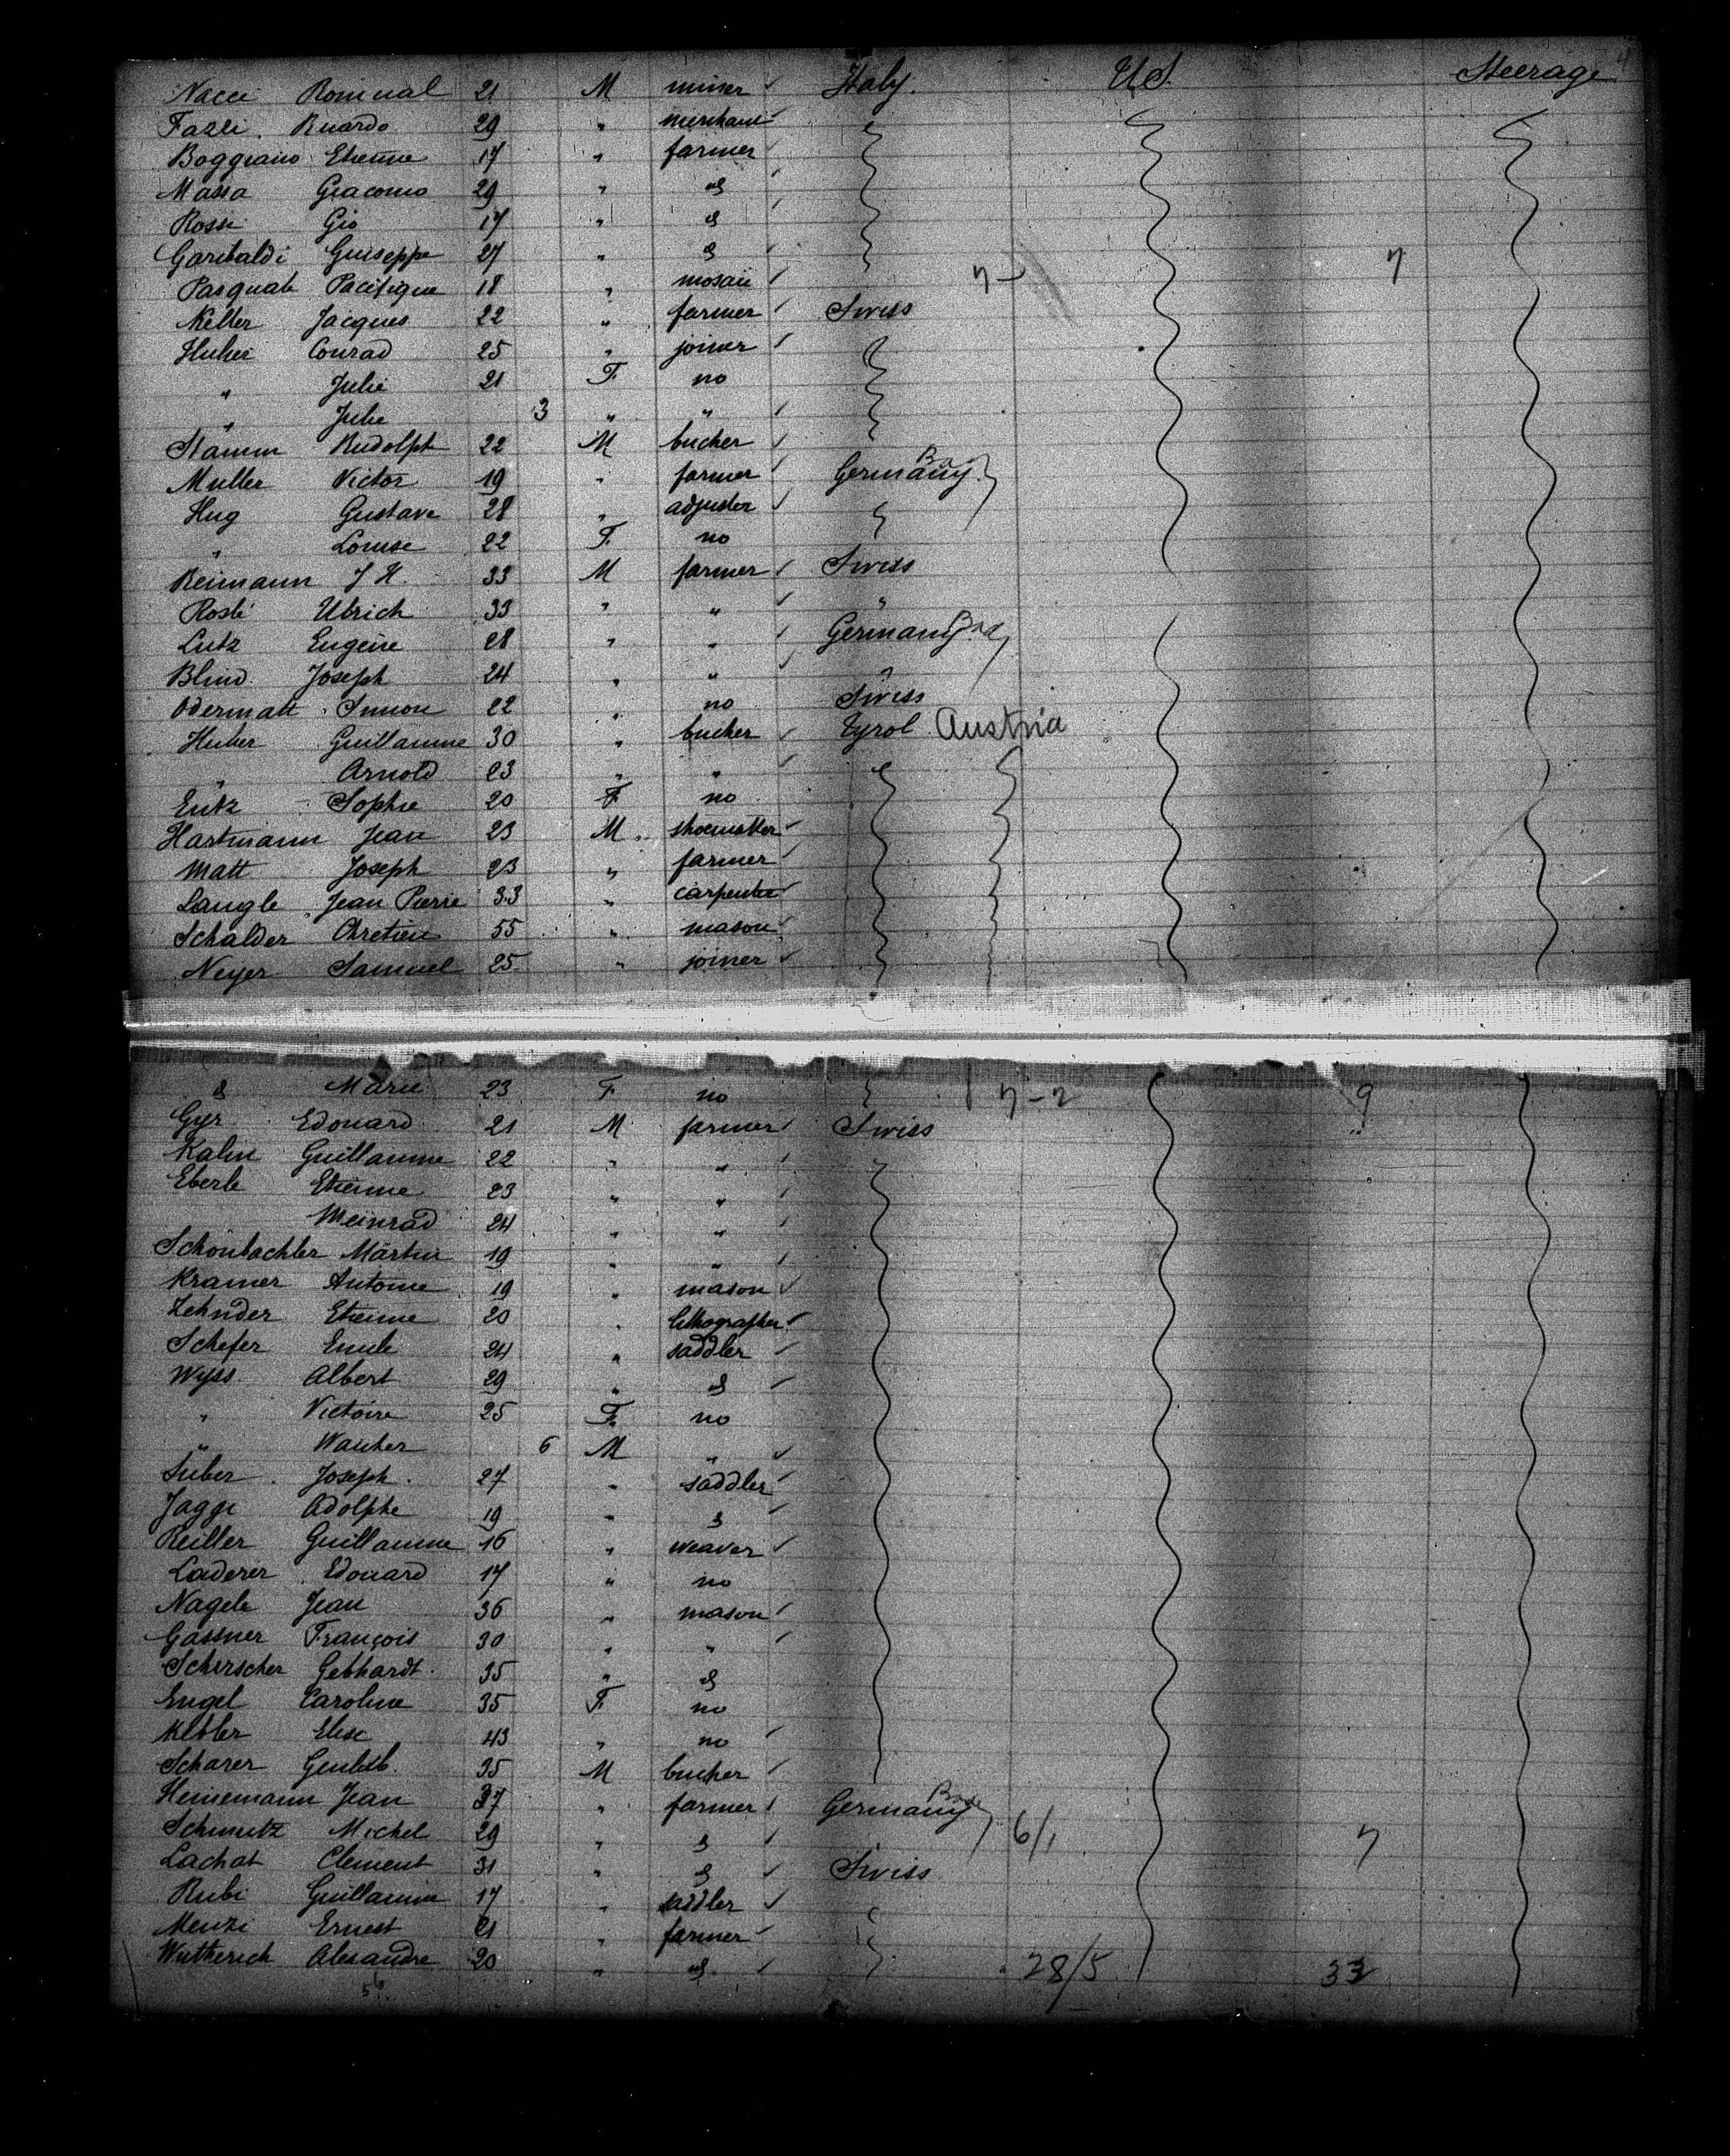 4
Nacci Romual 21 M miner ✓ Italy. U.S. Steerage
Fazli. Ricardo 29 " merchant ✓
Boggiano Etienne 17 " farmer ✓
Massa Giacomo 29 " d
Rossi Gio 17 " d
Garibaldi Guiseppe 27 " d
Pasquale Pacifique 18 " mosaic ✓ 7 7
Keller Jacques 22 " farmer ✓ Swiss
Huber Conrad 25 " joiner ✓
" Julie 21 F. no
" Julie 3 " " ✓
Stamm Rudolph 22 M bucher ✓
Muller Victor 19 " farmer ✓ Germany
Hug Gustave 28 " adjuster ✓
" Louise 22 F. no
Reimann J H. 33 M farmer ✓ Swiss
Rosli Ulrich 33 " " ✓ "
Lutz Eugene 28 " " ✓ Germany Bad
Blind Joseph 24 " " ✓ "
Odermatt Simon 22 " no Swiss
Huber Guillaume 30 " bucher ✓ Tyrol Austria
" Arnold 23 " " ✓
Lutz Sophie 20 F no
Hartmann Jean 23 M " shoemaker ✓
Matt Joseph 23 " farmer ✓
Langle Jean Pierre 33 " carpenter ✓
Schalder Chretien 55 " mason ✓
Neyer Samuel 25 " joiner ✓
d Marie 23 F. no 7-2 9
Gyr Edouard 21 M farmer ✓ Swiss
Kalin Guillaume 22 " " ✓
Eberle Etienne 23 " " ✓
Meinrad 24 " " ✓
Schönbachler Martin 19 " " ✓
Kramer Antoine 19 " mason ✓
Zehnder Etienne 20 " lithographer ✓
Schefer Emile 24 " saddler ✓
Wyss. Albert 29 " d ✓
" Victoire 25 F. no
" 6 M " ✓
Suber Joseph. 27 " saddler ✓
Jaggi Adolphe 19 " d ✓
Reiller Guillaume 16 " weaver ✓
Laderer Edouard 17 " no
Nagele Jean 36 " mason ✓
Gassner François 30 " " ✓
Scherscher Gebhardt. 35 " d
Engel Caroline 35 F. no
Elise 43 " no ✓
Scharer 35 M bucher ✓
Heinemann Jean 37 " farmer ✓ Germany Bade
Schmitz Michel 29 " d ✓ 6/1 7
Lachat Clement 31 " d ✓ Swiss
Rubi Guillaume 17 " saddler ✓
Menzi Ernest 21 " farmer ✓
Wutherich Alexandre 20 " d ✓ 28/5 33
56